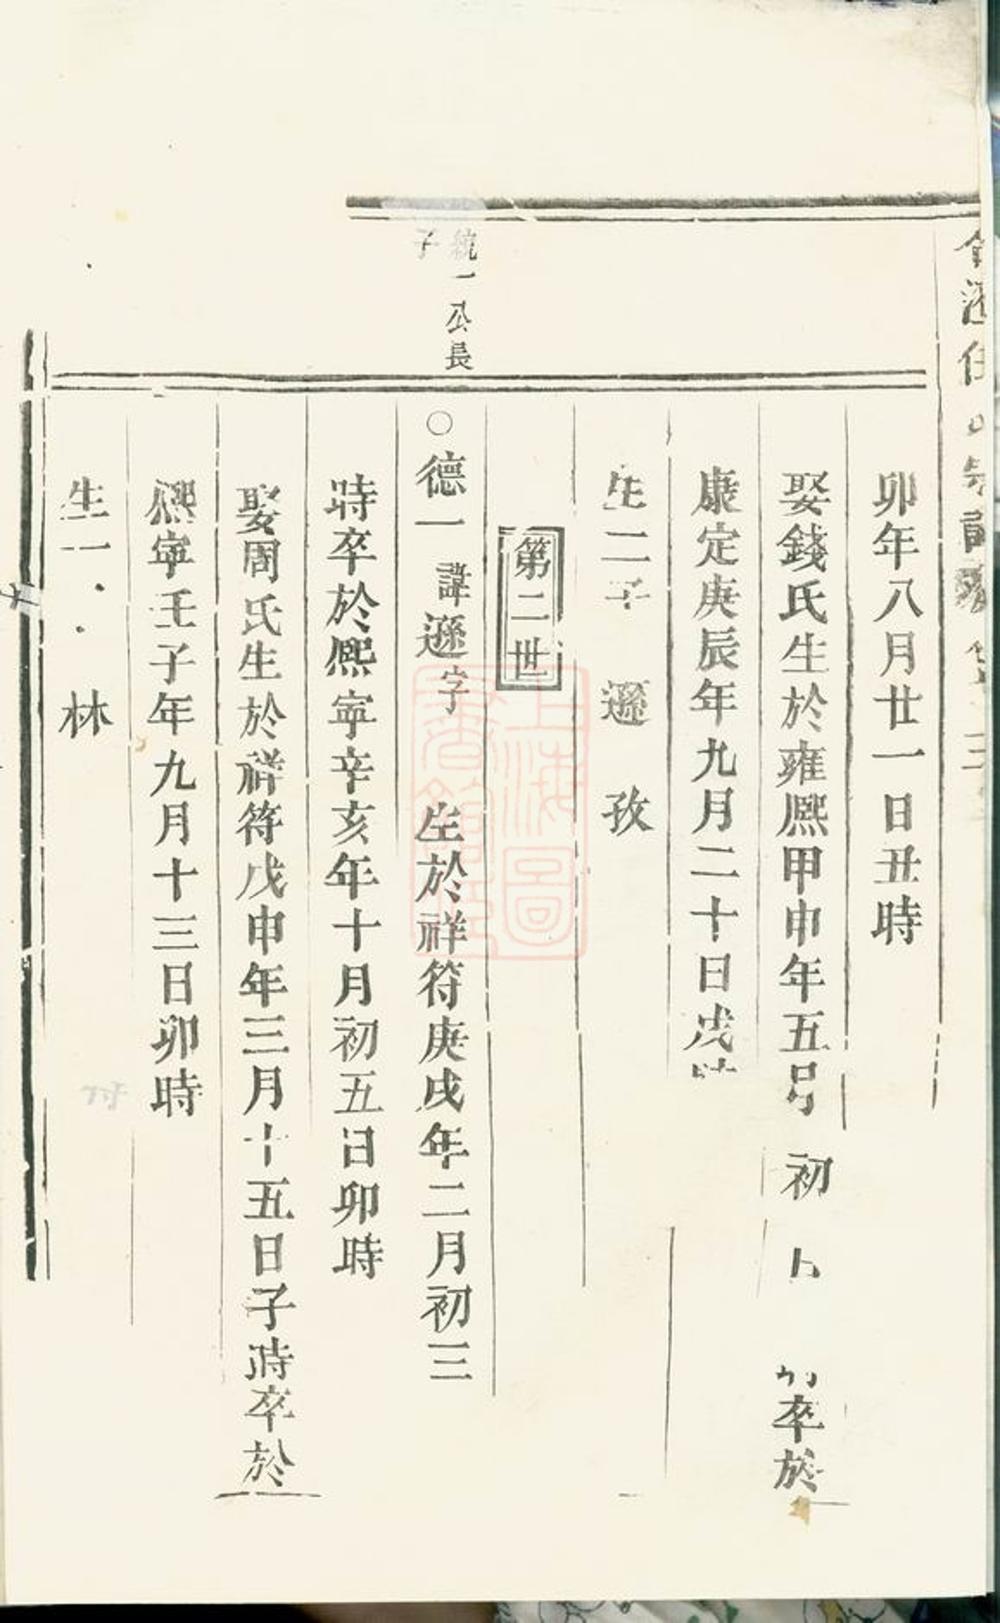 卯年八月廿一日丑時
娶錢氏生於雍熈甲申年五月初 卒於
康定庚辰年九月二十日戌時
生二子 遜 孜
第二世
統一公長
子
○德一諱遜字 生於祥符庚戌年二月初三
時卒於熈寧辛亥年十月初五日卯時
娶周氏生於祥符戊申年三月十五日子時卒於
熈寧壬子年九月十三日卯時
生一 林
上海圖
書館藏